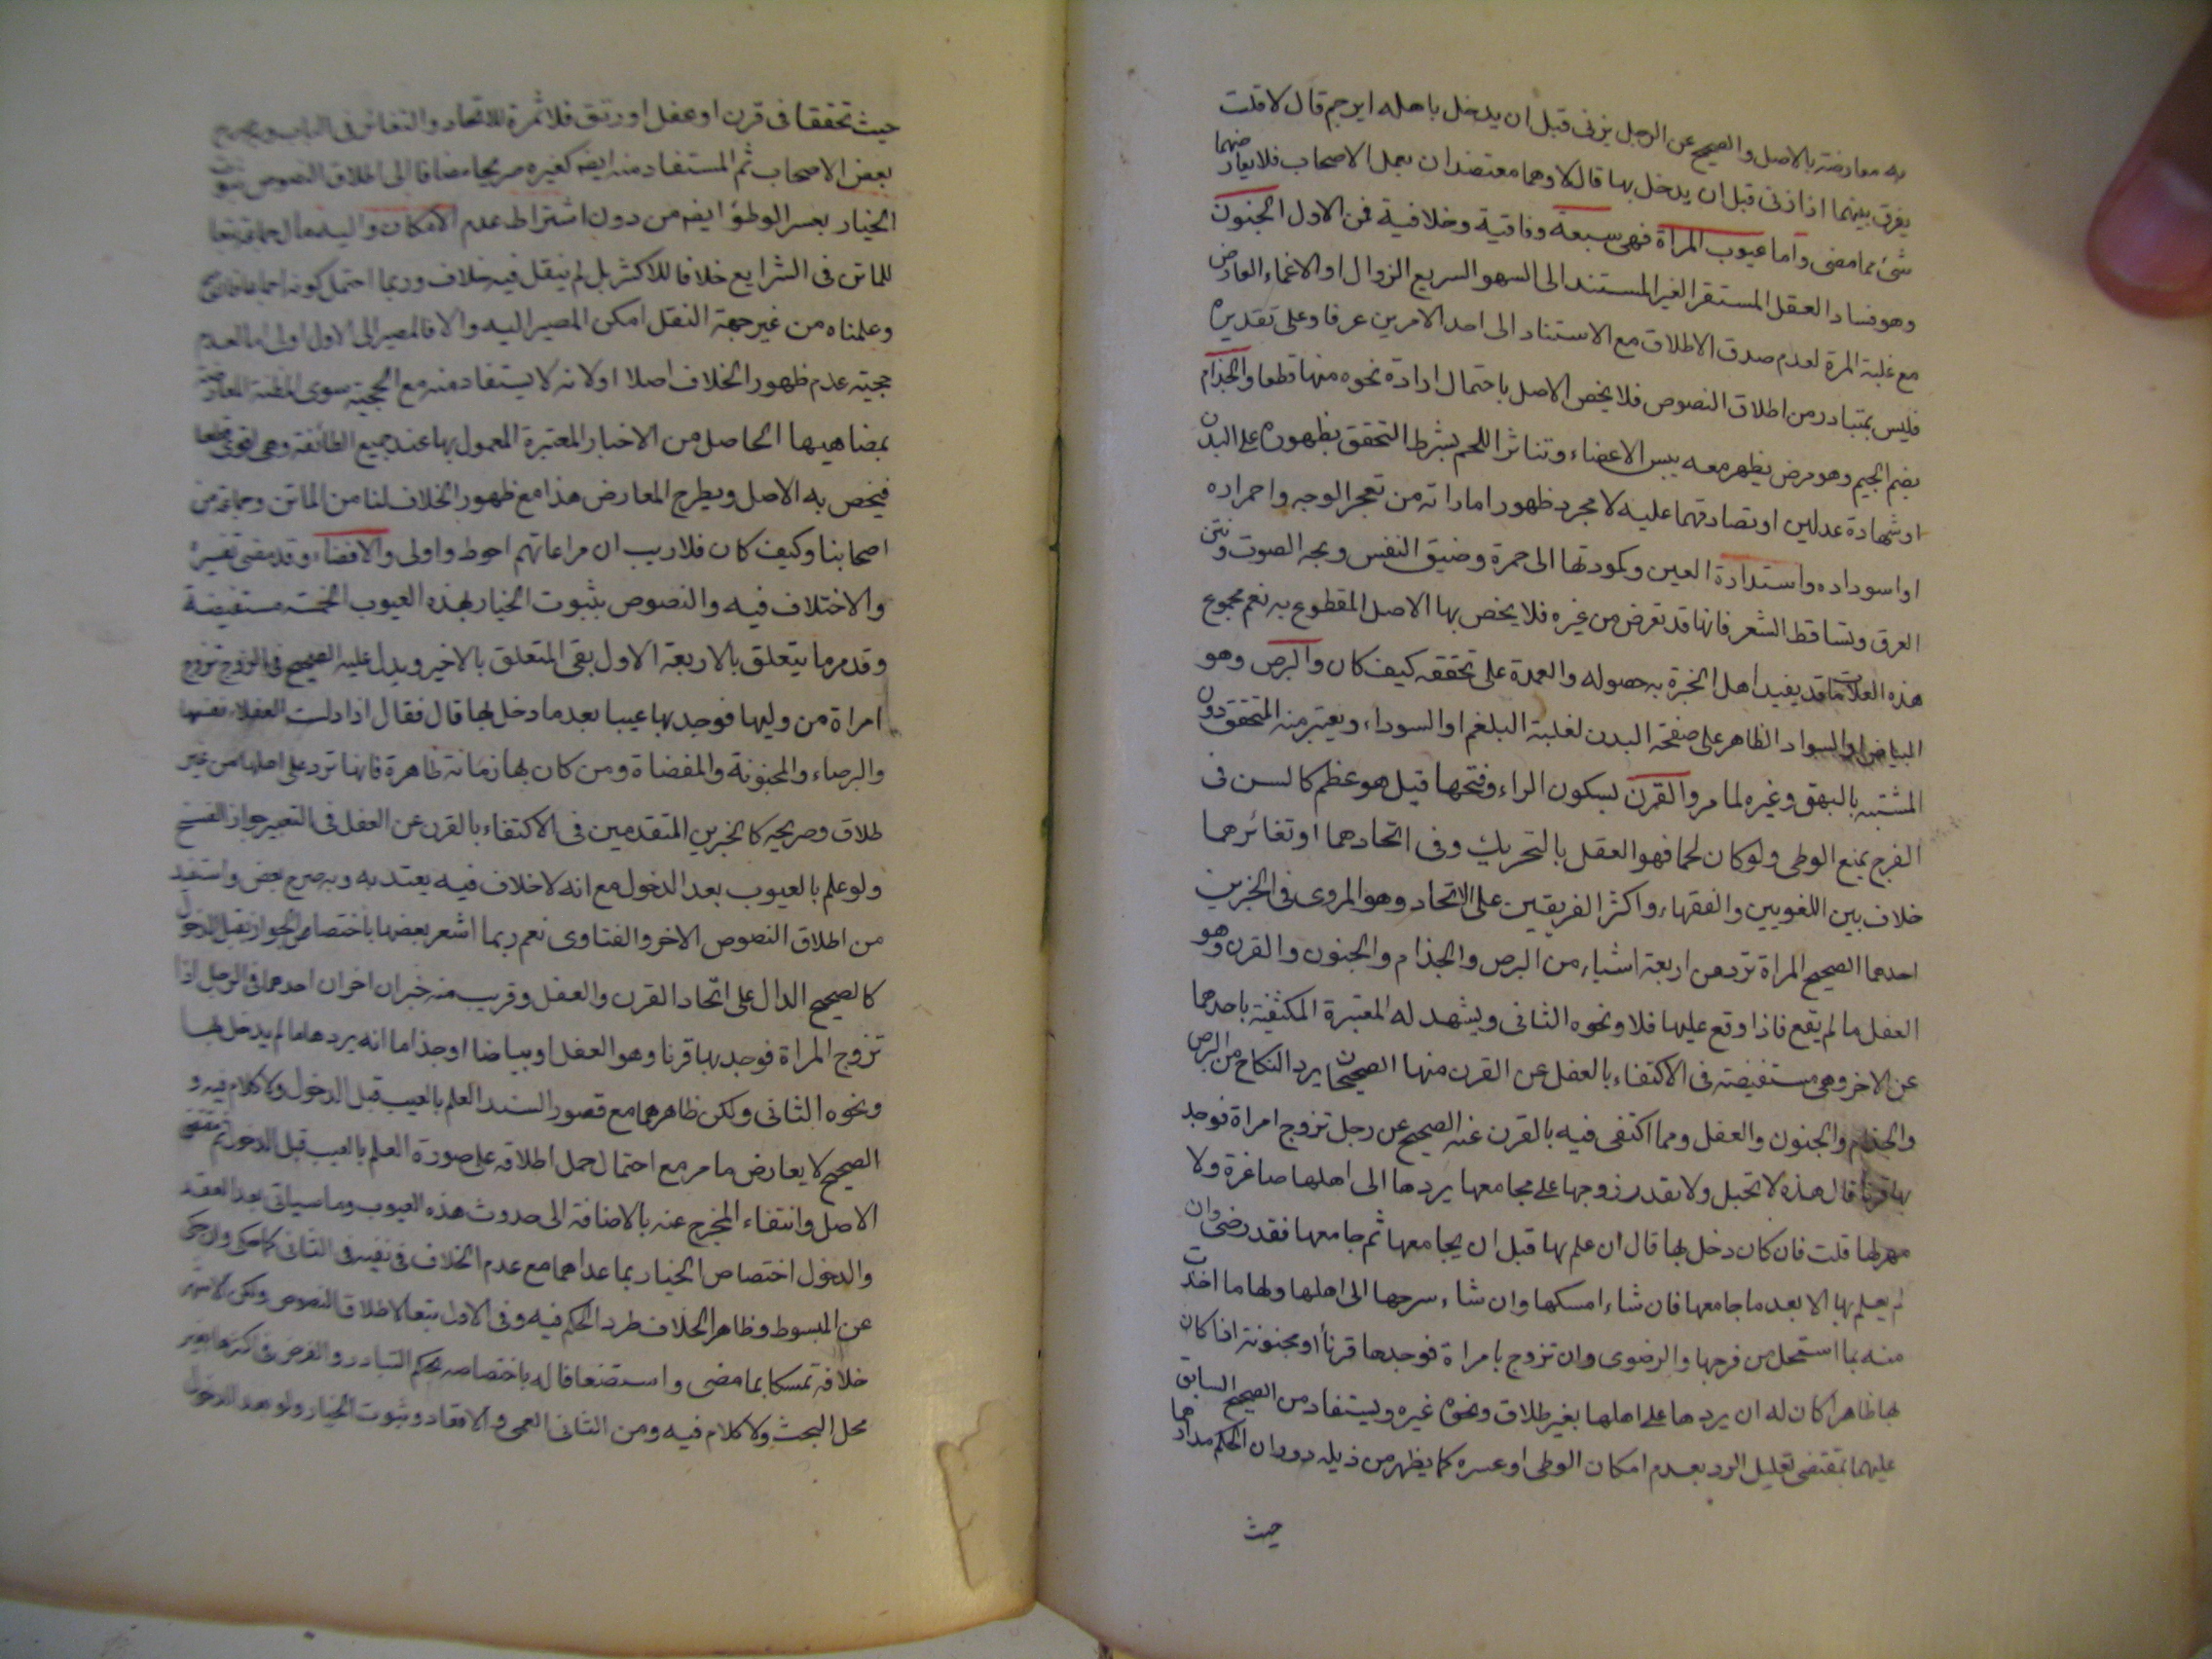 به معارضة بالاصل والصحيح عن الرجل يزنى قبل ان يدخل باهله ايرجم قال لا قلت
يفرق بينهما اذا زنى قبل ان يدخل بها قال لا وهما معتضدان بعمل الاصحاب فلا يعارضهما
شئ مما مضى واما عيوب المراة فهى سبعة وفاقية وخلافية فمن الاول الجنون
وهو فساد العقل المستقر الغير المستند الى السهو السريع الزوال او الاغماء العارض
مع غلبة المرة لعدم صدق الاطلاق مع الاستناد الى احد الامرين عرفا وعلى تقديره
فليس بمتبادر من اطلاق النصوص فلا يخص الاصل باحتمال ارادة نحوه منها قطعا والجذام
بضم الجيم وهو مرض يظهر معه يبس الاعضاء وتناثر اللحم بشرط التحقق بظهوره على البدن
او شهادة عدلين او تصادقهما عليه لا مجرد ظهور اماراته من تعجر الوجه واحمراره
او اسوداده واستدارة العين وكمودتها الى حمرة وضيق النفس وبحه الصوت ونتن
العرق وتساقط الشعر فانها قد تعرض من غيره فلا يخص بها الاصل المقطوع به نعم مجموع
هذه العلامات قد يفيد اهل الخبرة به حصوله والعمدة على تحققه كيف كان والبرص وهو
البياض او السواد الظاهر على صفحة البدن لغلبة البلغم او السوداء ويعتبر منه المتحقق دون
المشتبه بالبهق وغيره لما مر والقرن بسكون الراء وفتحها قيل هو عظم كالسن فى
الفرج يمنع الوطى ولو كان لحما فهو العفل بالتحريك وفى اتحادهما او تغائرهما
خلاف بين اللغويين والفقهاء واكثر الفريقين على الاتحاد وهو المروى فى الخبرين
احدهما الصحيح المراة ترد من اربعة اشياء من البرص والجذام والجنون والقرن وهو
العفل ما لم يقع فاذا وقع عليها فلا ونحوه الثانى ويشهد له المعتبرة المكتفية باحدهما
عن الاخر وهى مستفيضة فى الاكتفاء بالعفل عن القرن منها الصحيحان يرد النكاح من البرص
والجذام والجنون والعفل ومما اكتفى فيه بالقرن عنه الصحيح عن رجل تزوج امراة فوجد
بها قرنا قال هذه لا تحبل ولا يقدر زوجها على مجامعها يردها الى اهلها صاغرة ولا
مهر لها قلت فان كان دخل بها قال ان علم بها قبل ان يجامعها ثم جامعها فقد رضى وان
لم يعلم بها الا بعد ما جامعها فان شاء امسكها وان شاء سرحها الى اهلها ولها ما اخذت
منه بما استحل من فرجها والرضوى وان تزوج بامراة فوجدها قرنأ او مجنونة اذا كان
بها ظاهرا كان له ان يردها على اهلها بغير طلاق ونحوه غيره ويستفاد من الصحيح السابق
عليهما بمقتضى تعليل الرد بعدم امكان الوطى او عسره كما يظهر من ذيله دوران الحكم مدارهما
حيث
حيث تحققا فى قرن او عفل او رتق فلا ثمرة للاتحاد والتغائر فى الباب
بعض الاصحاب ثم المستفاد منه ايضا كغيره صريحا مضافا الى اطلاق النصوص ثبوت
الخيار بعسر الوطؤ ايضا من دون اشتراط عدم الامكان واليه مال جماعة تبعا
للماتن فى الشرايع خلافا للاكثر بل لم ينقل فيه خلاف وربما احتمل كونه اجماعا
وعلمناه من غير جهة النقل امكن المصير اليه والا فالمصير الى الاول اولى اما لعدم
حجيته عدم ظهور الخلاف اصلا او لانه لا يستفاد منه مع الحجية سوى المظنة المعارضة
بمضاهيها الحاصل من الاخبار المعتبرة المعمول بها عند جميع الطائفة وهى اقوى قطعا
فيخص به الاصل ويطرح المعارض هذا مع ظهور الخلاف لنا من الماتن وجماعة من
اصحابنا وكيف كان فلا ريب ان مراعاتهم احوط واولى والافضاء وقد مضى تفسيره
والاختلاف فيه والنصوص بثبوت الخيار بهذه العيوب الخمسة مستفيضة
وقد مر ما يتعلق بالاربعة الاول بقى المتعلق بالاخير ويدل عليه الصحيح فى الرجل تزوج
امراة من وليها فوجد بها عيبا بعد ما دخل بها قال فقال اذا دلست العفلاء نفسها
والبرصاء والمجنونة والمفضاة ومن كان بها زمانة ظاهرة فانها ترد على اهلها من غير
طلاق وصريحه كالخبرين المتقدمين فى الاكتفاء بالقرن عن العفل فى التعبير جواز الفسخ
ولو علم بالعيوب بعد الدخول مع انه لا خلاف فيه يعتد به وبه صرح بعض واستفيد
من اطلاق النصوص الاخر والفتاوى نعم ربما اشعر بعضها باختصاص الجواز بقبل الدخول
كالصحيح الدال على اتحاد القرن والعفل وقريب منه خبران اخران احدهما فى الرجل اذا
تزوج المراة فوجد بها قرنا وهو العفل او بياضا او جذاما انه يردها ما لم يدخل بها
ونحوه الثانى ولكن ظاهرهما مع قصور السند العلم بالعيب قبل الدخول ولا كلام فيه و
الصحيح لا يعارض ما مر مع احتمال حمل اطلاقه على صورة العلم بالعيب قبل الدخول ثم مقتضى
الاصل وانتفاء المخرج عنه بالاضافة الى حدوث هذه العيوب وما سياتى بعد العقد
والدخول اختصاص الخيار بما عداهما مع عدم الخلاف فى نفيه فى الثانى كما حكى وان حكى
عن المبسوط وظاهر الخلاف طرد الحكم فيه وفى الاول تبعا لاطلاق النصوص ولكن الاشهر
خلافه تمسكا بما مضى واستضعافا له باختصاصه بحكم التبادر والفرض فى اكثرها بغير
محل البحث ولا كلام فيه ومن الثانى العمى والاقعاد وثبوت الخيار ولو بعد الدخول